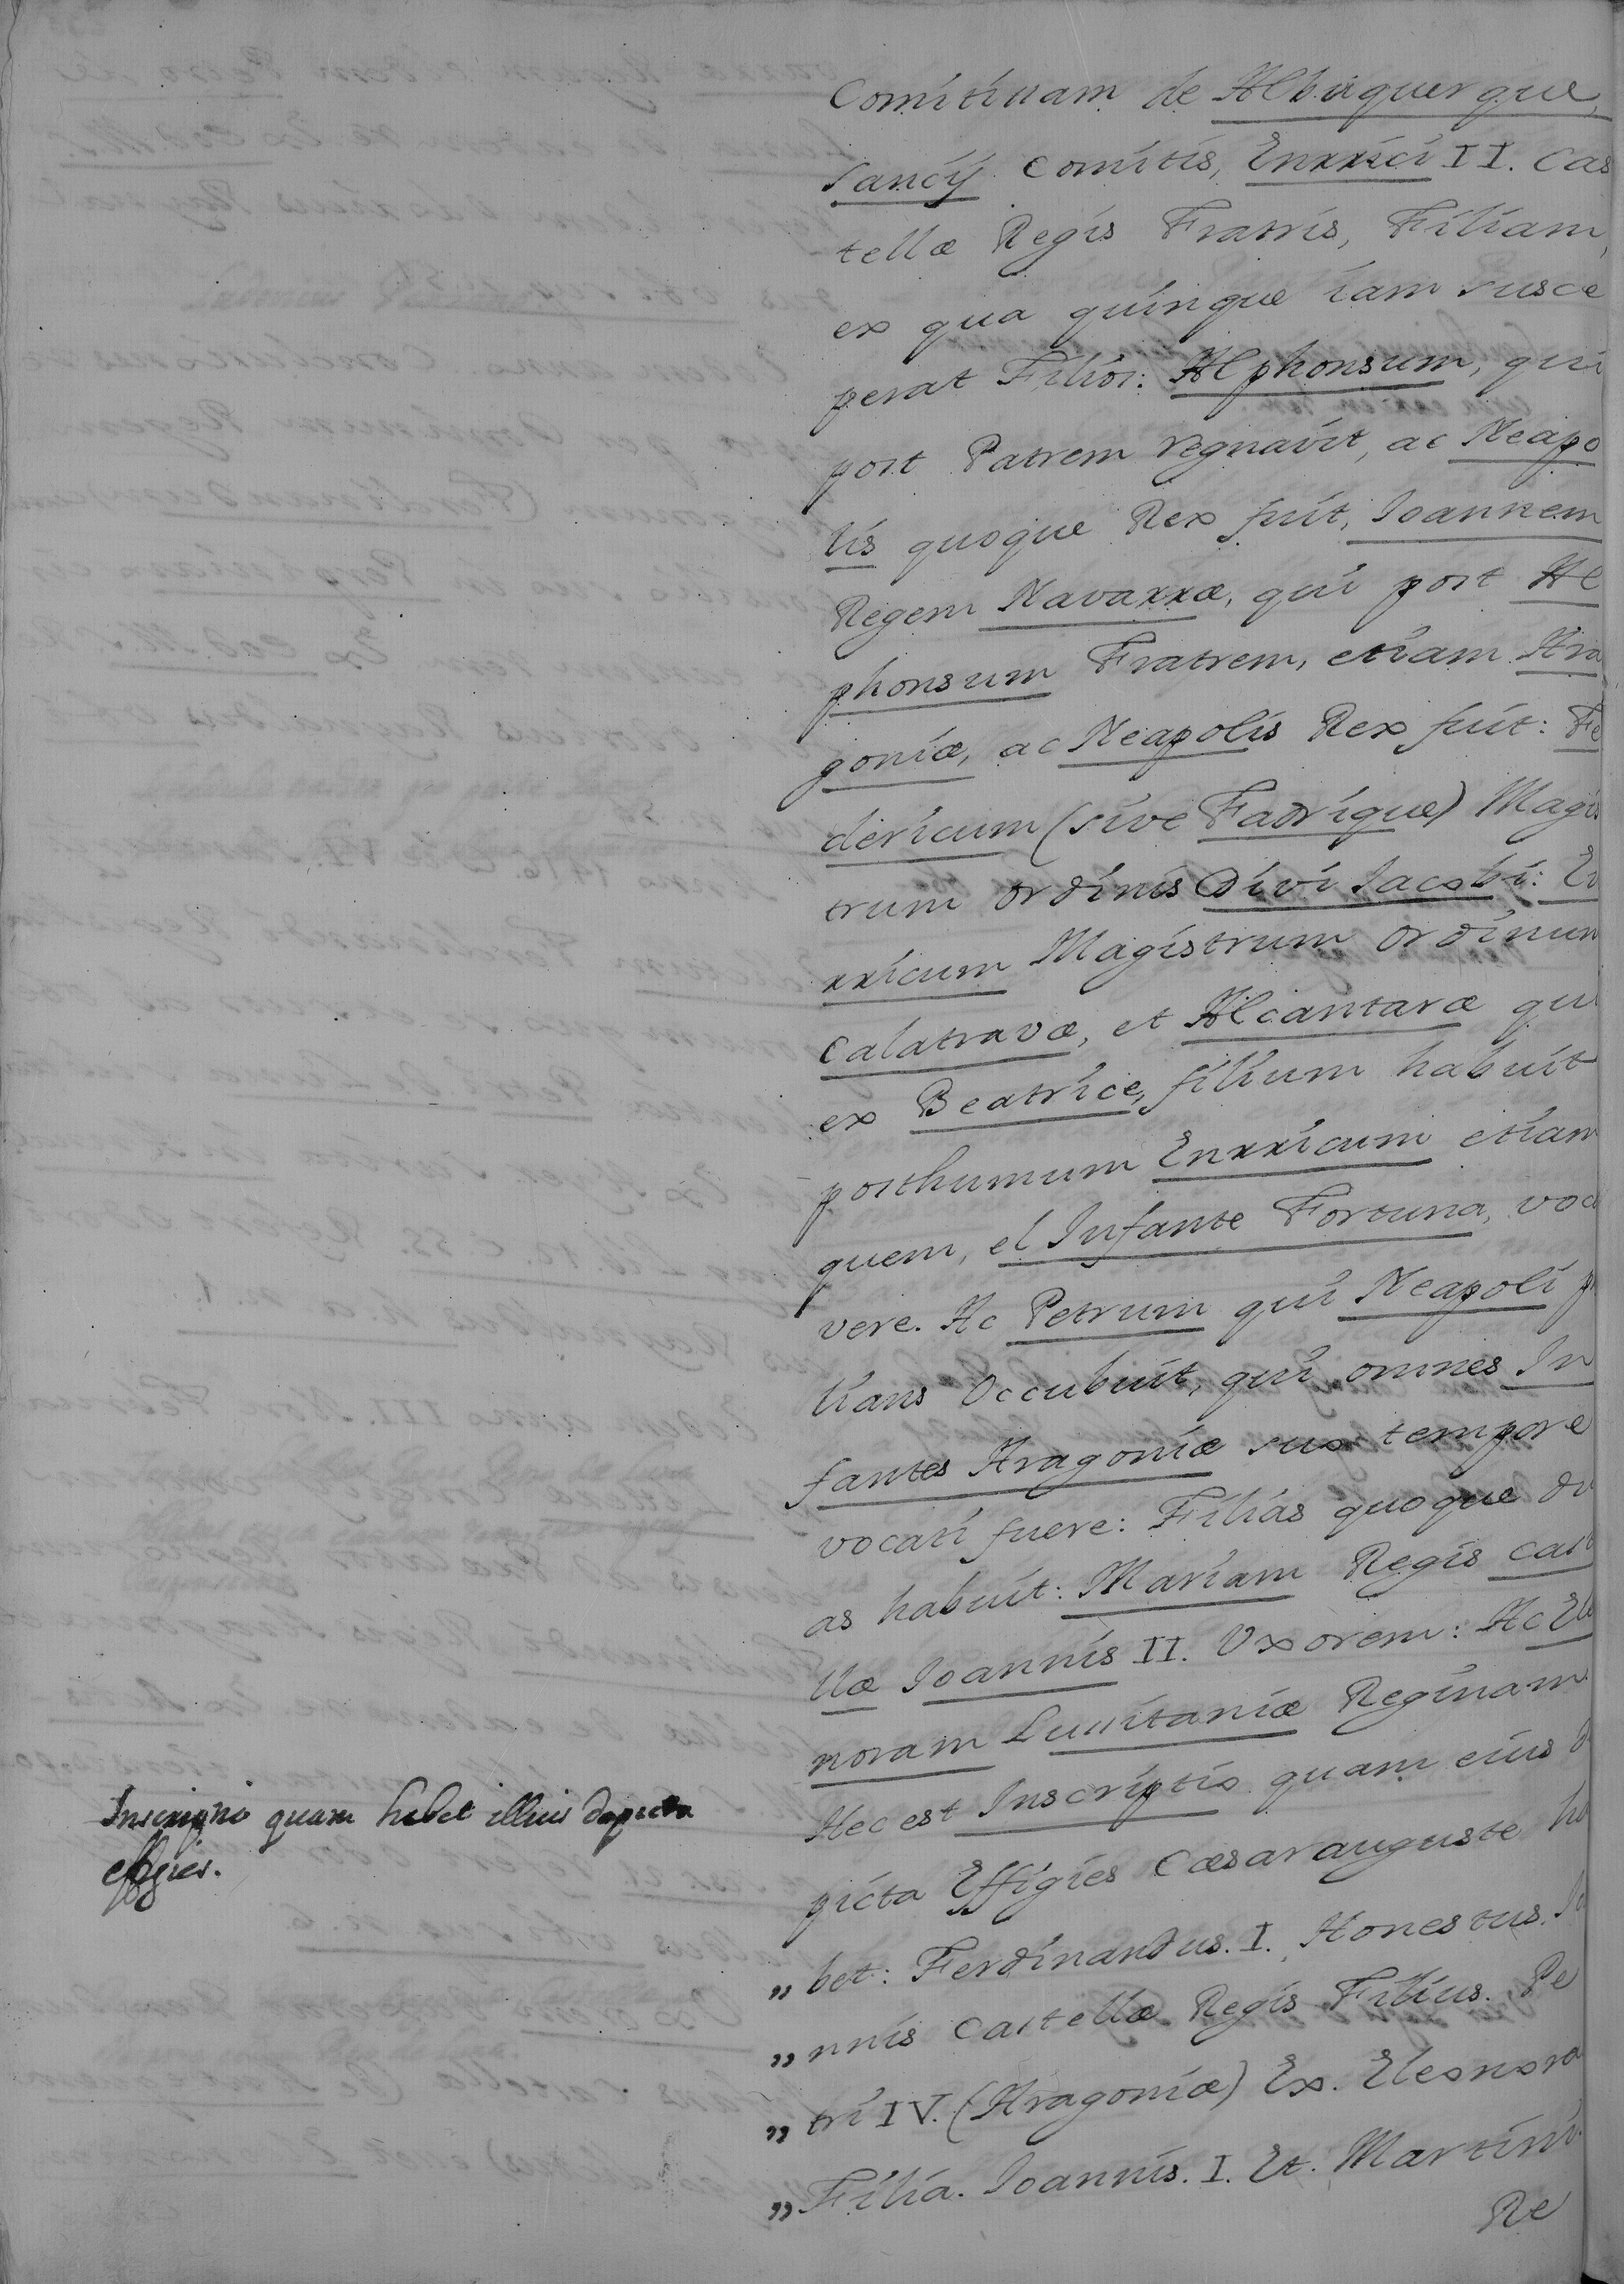 Comitivam de Alburquerque,
Sancij Comitis, Enrrici II. Cas
tellæ Regis Fratris, Filiam,
ex qua quinque iam susce
perat Filios: Alphonsum, qui
post Patrem regnavit, ac Neapo
lis quoque Rex fuit, Ioannem
Regem Navarræ, qui post Al
phonsum Fratrem, etiam Ara
goniæ, ac Neapolis Rex fuit: Fe
dericum (sive Fadrique) Magis
trum ordinis Divi Iacobi: En
rricum Magistrum ordinum
Calatravæ, et Alcantaræ qui
ex Beatrice, filium habuit
posthumum Enrricum etiam
quem, el Infante Fortuna, voca
vere. Ac Petrum qui Neapoli p
lians occubuit, qui omnes In
fantes Aragoniæ suo tempore
vocati fuere: Filias quoque du
as habuit: Mariam Regis Cast
llæ Ioannis II. Uxorem: Ac Eleo
noram Lusitaniæ Reginam
Hec est Inscriptio quam eius de
picta Effigies Cæsarauguste ha
„ bet: Ferdinandus. I. Honestus. Io
„ nnis Castellæ Regis Filius. Pe
„ tri IV. (Aragoniæ) Ex. Eleonora
„ Filia. Ioannis. I. Et. Martini.
Re
Inscriptio quam habet illius depicta
effigies.